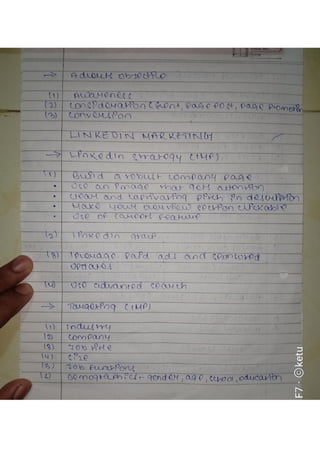 → Adverts objective
(1) Awareness
(2) Consideration (Event, page post, page promotion
(3) Conversion
LINKEDIN MARKETING
→ Linkedin strategy (IMP)
(1) Build a robust company page
• Use an image that gets attention
• Clear and captivating pitch in description
• Make your overview section clickable
• Use of careers feature
(2) Linkedin group
(3) Leverage paid ads and sponsored
updates
(4) Use advanced search
→ Targeting (IMP)
(1) Industry
(2) Company
(3) Job title
(4) Size
(5) Job functions
(6) Demographics - gender, age, school, education
F7 · ©ketu